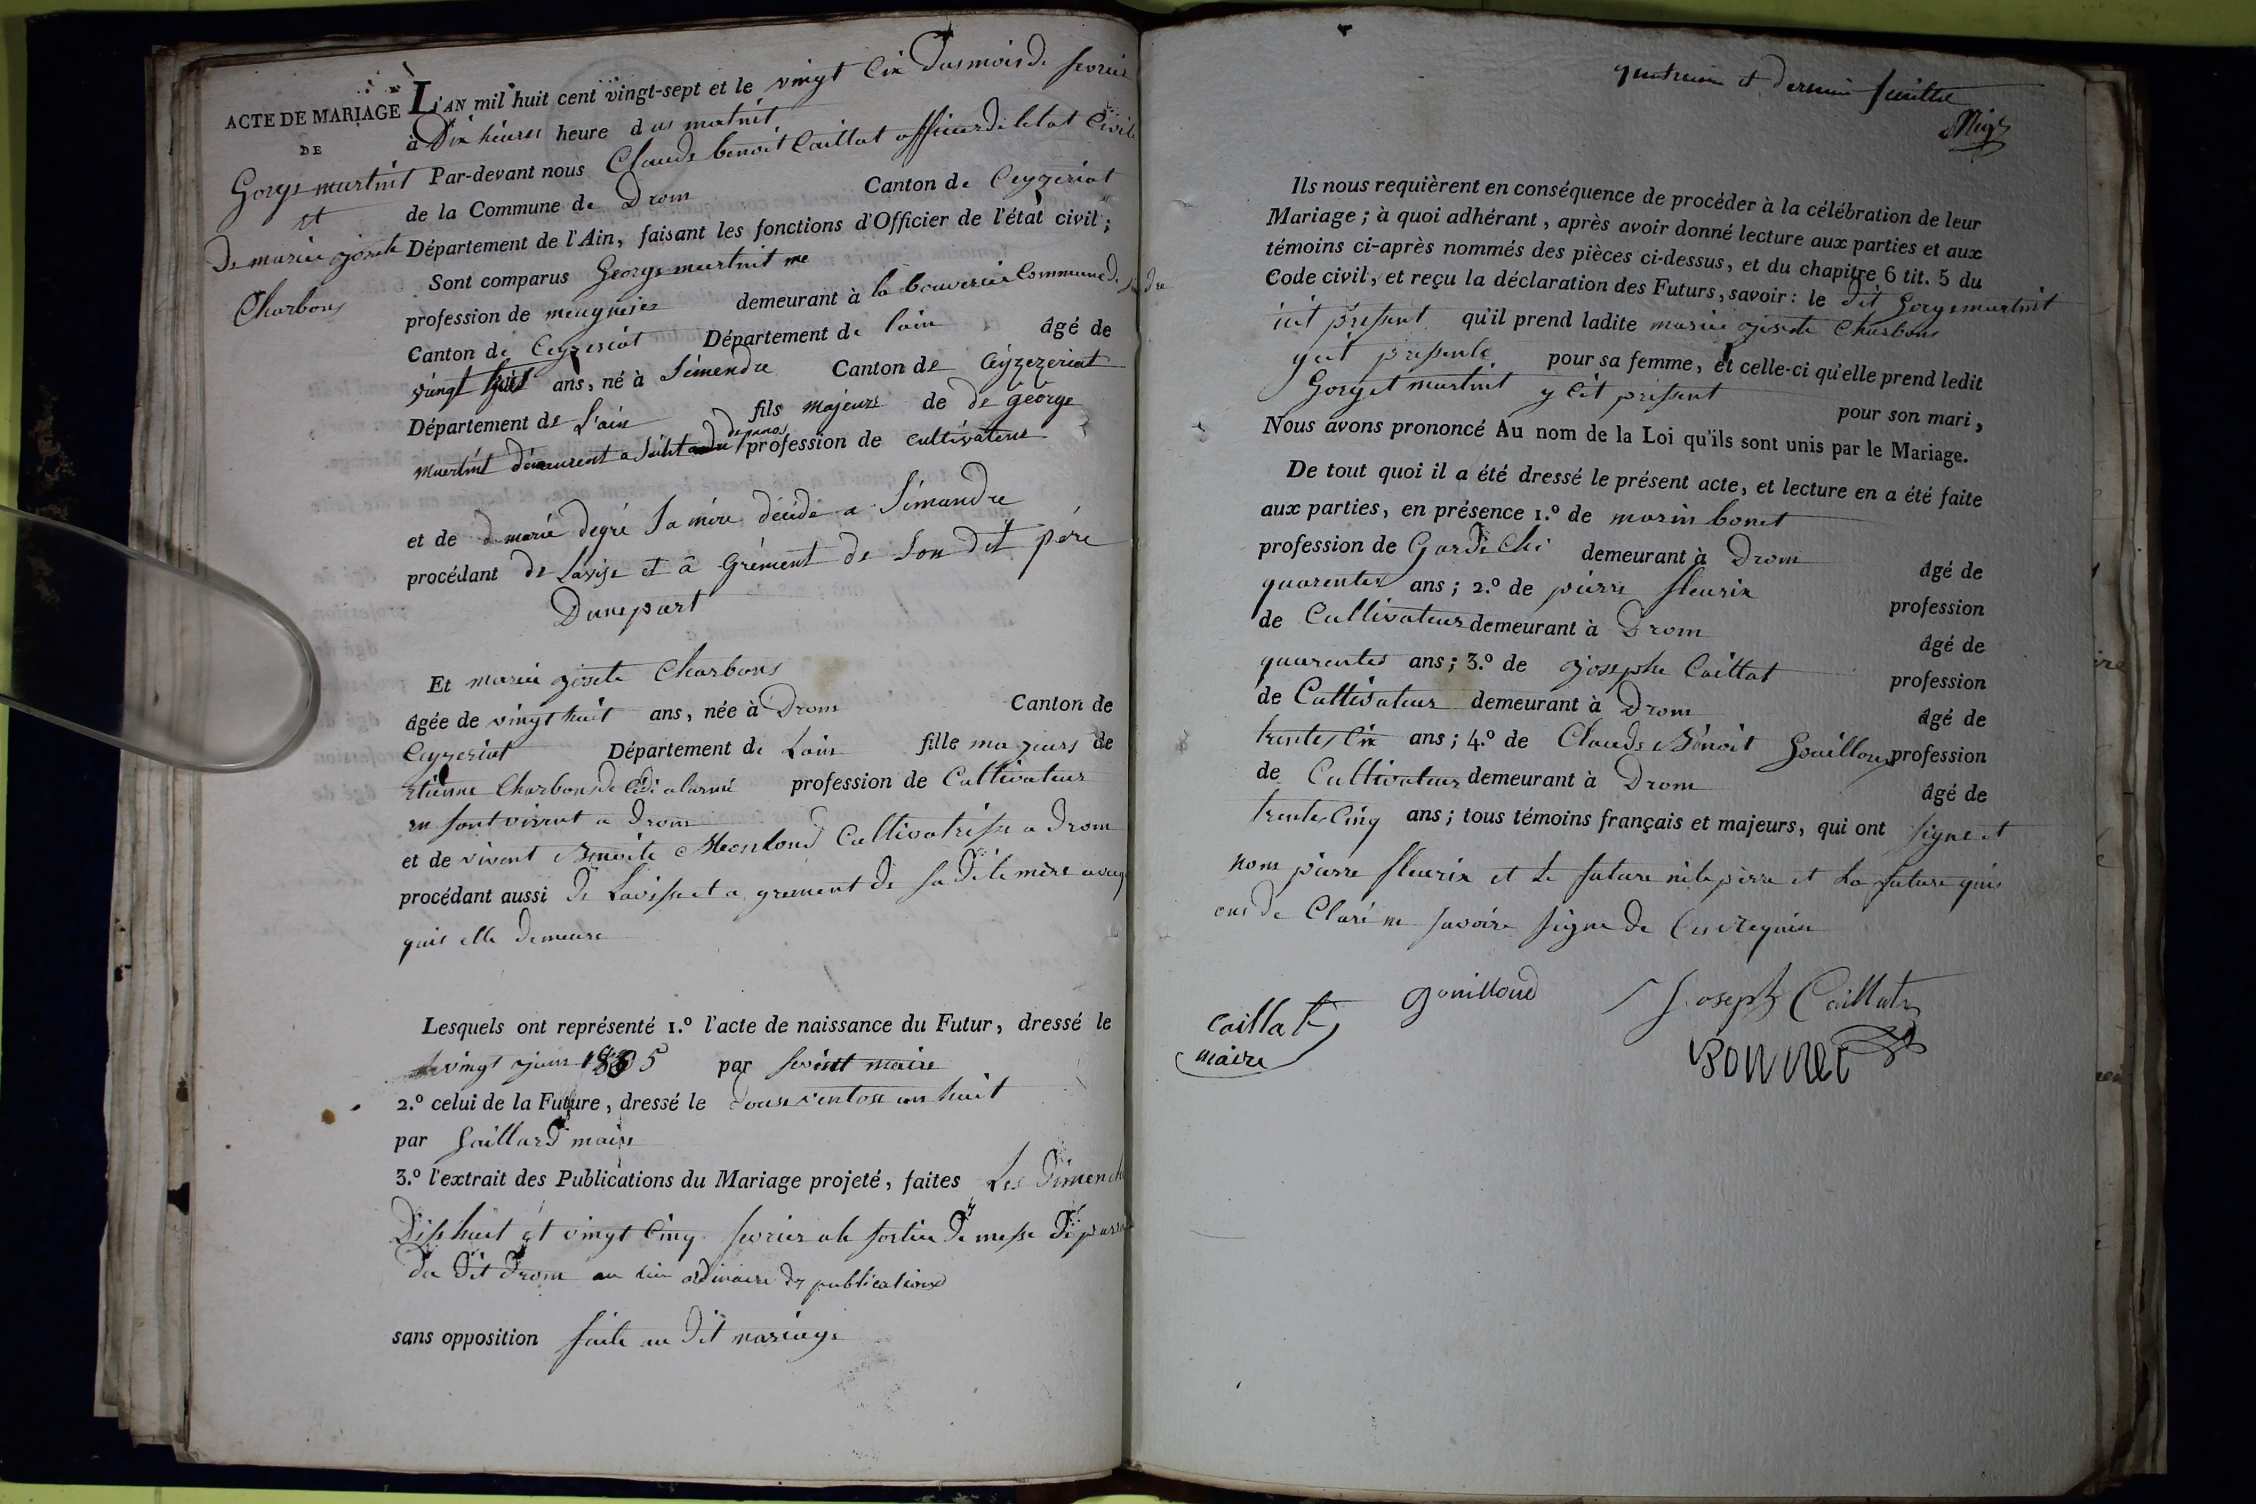 ACTE DE MARIAGE
DE
Gorge martint
et
De mariee josete
Charbons
L'AN mil huit cent vingt-sept et le vingt Cix dusmois de fevrier
a Dix heures heure dus matint
Par-devant nous Claude benoit Caillat officier de letat Civile
de la Commune de Drom Canton de Ceyzeriat
Département de l'Ain, faisant les fonctions d'Officier de l'état civil;
Sont comparus George martint
profession de meugnier demeurant à la bouverie Commune de
Canton de Ceyzeriat Département de lain âgé de
vingt ans, né à Simendre Canton de Ceyzezeriat
Département de L'ain fils majeure de de George
Martint demeurent a profession de cultivateur
et de d marie degré Sa mére décéde a Simandre
procédant de Lavise et à Grément de Son dit pére
Dune part
Et mariee josete Charbons
âgée de vingt huit ans, née à Drom Canton de
Ceyzeriat Département de Lain fille majeurs de
Etienne Charbons profession de Cultivateur
en sont vivent a Drom
et de vivent Benoite Cultivatrisse a Drom
procédant aussi de Lavisse et a grement de sa dite mére aveq
quit elle demeure
Lesquels ont représenté 1.º l'acte de naissance du Futur, dressé le
vingt juin 1805 par maire
2.º celui de la Future, dressé le douse ventose an huit
par Gaillard maire
3.º l'extrait des Publications du Mariage projeté, faites Les Dimenche
Disshuit et vingt Cinq fevrier a la sortie de messe de
du dit Drom au lieu ordinaire de publications
sans opposition faite au dit mariage
quatrieme et dernier feuillet
Ils nous requièrent en conséquence de procéder à la célébration de leur
Mariage; à quoi adhérant, après avoir donné lecture aux parties et aux
témoins ci-après nommés des pièces ci-dessus, et du chapitre 6 tit. 5 du
Code civil, et reçu la déclaration des Futurs, savoir: le dit Gorge martint
icit présent qu'il prend ladite mariee josete Charbons
y cit presente pour sa femme, et celle-ci qu'elle prend ledit
Gorget martint y cit présent pour son mari,
Nous avons prononcé Au nom de la Loi qu'ils sont unis par le Mariage.
De tout quoi il a été dressé le présent acte, et lecture en a été faite
aux parties, en présence 1.º de marin bonet
profession de Garde demeurant à Drom âgé de
quarentes ans; 2.º de pierre fleurix profession
de Cultivateurs demeurant à Drom âgé de
quarentes ans; 3.º de josephe Caillat profession
de Cultivateur demeurant à Drom âgé de
trentes Cix ans; 4.º de Claude Benoit Gouilloux profession
de Cultivateur demeurant à Drom âgé de
trentes Cinq ans; tous témoins français et majeurs, qui ont signe et
nom pierre fleurix et Le future pére et La future quis
ons de Claré ne savoire signe de Ces requis
Caillat
maire
Gouilloud
Joseph Caillat
Bonnet